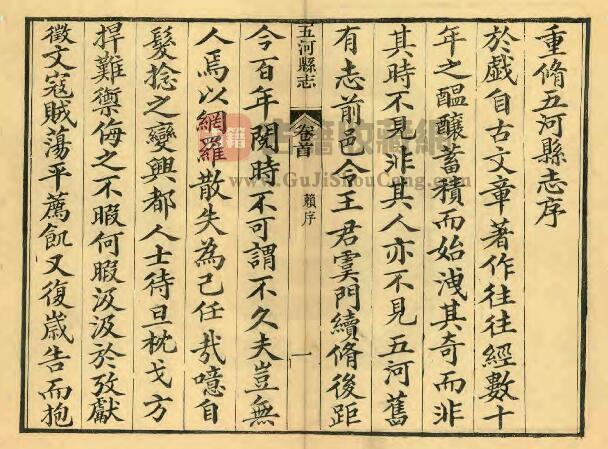 重脩五河縣志序
於戲自古文章著作往往經數十
年之醖釀蓄積而始洩其奇而非
其時不見非其人亦不見五河舊
有志前邑令王君霙門續脩後距
五河縣志
卷首
賴序
一
今百年閱時不可謂不久夫豈無
人焉以網羅散失為己任㢤噫自
髮捻之變興都人士待旦枕戈方
捍難禦侮之不暇何暇汲汲於攷獻
徵文寇賊蕩平薦飢又復歲告而抱
www.GuJiShouCang.com